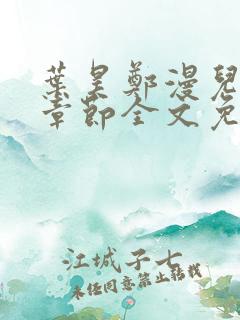 葉昊鄭漫兒
章節全文免
江城子七
未经同意禁止转载